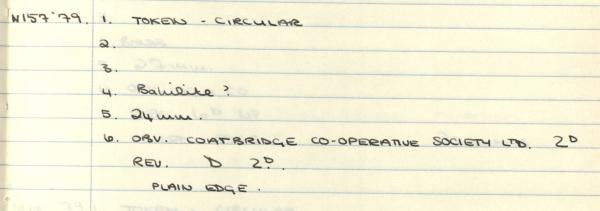 N157'79. 1. TOKEN - CIRCULAR
2.
3.
4. Bakilite?
5. 24mm.
6. OBV. COATBRIDGE CO-OPERATIVE SOCIETY LTD. 2D
REV. D 2D.
PLAIN EDGE.